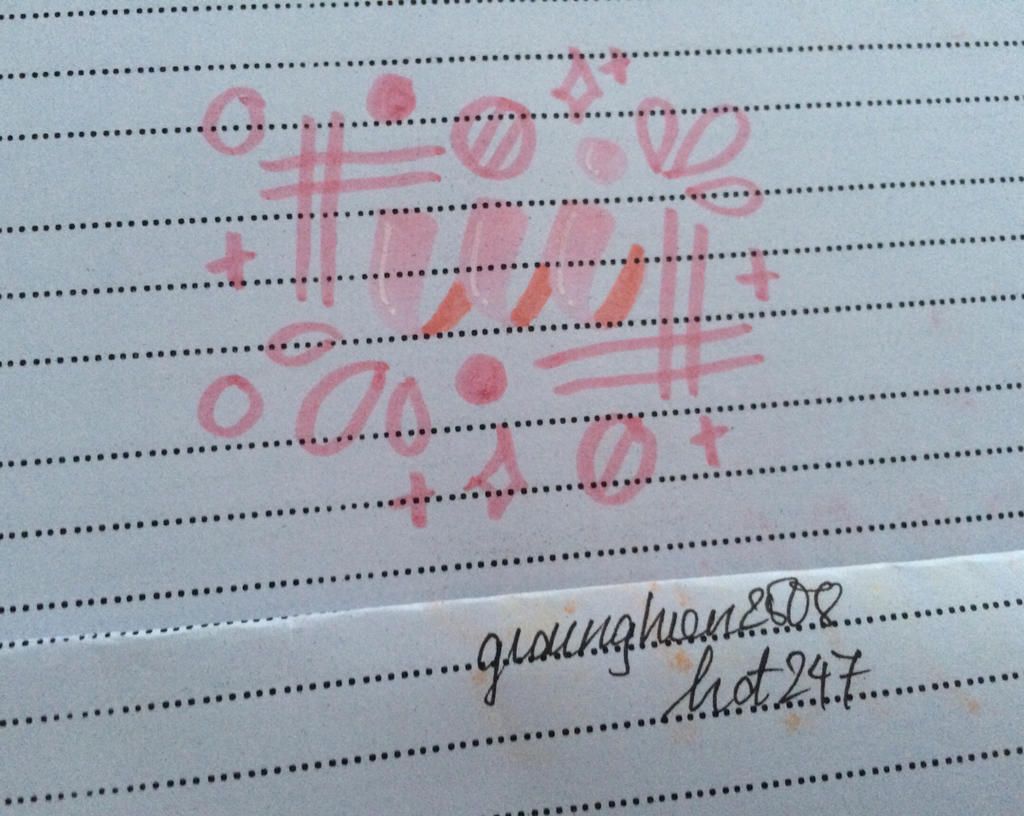 gianghien2508
hot247